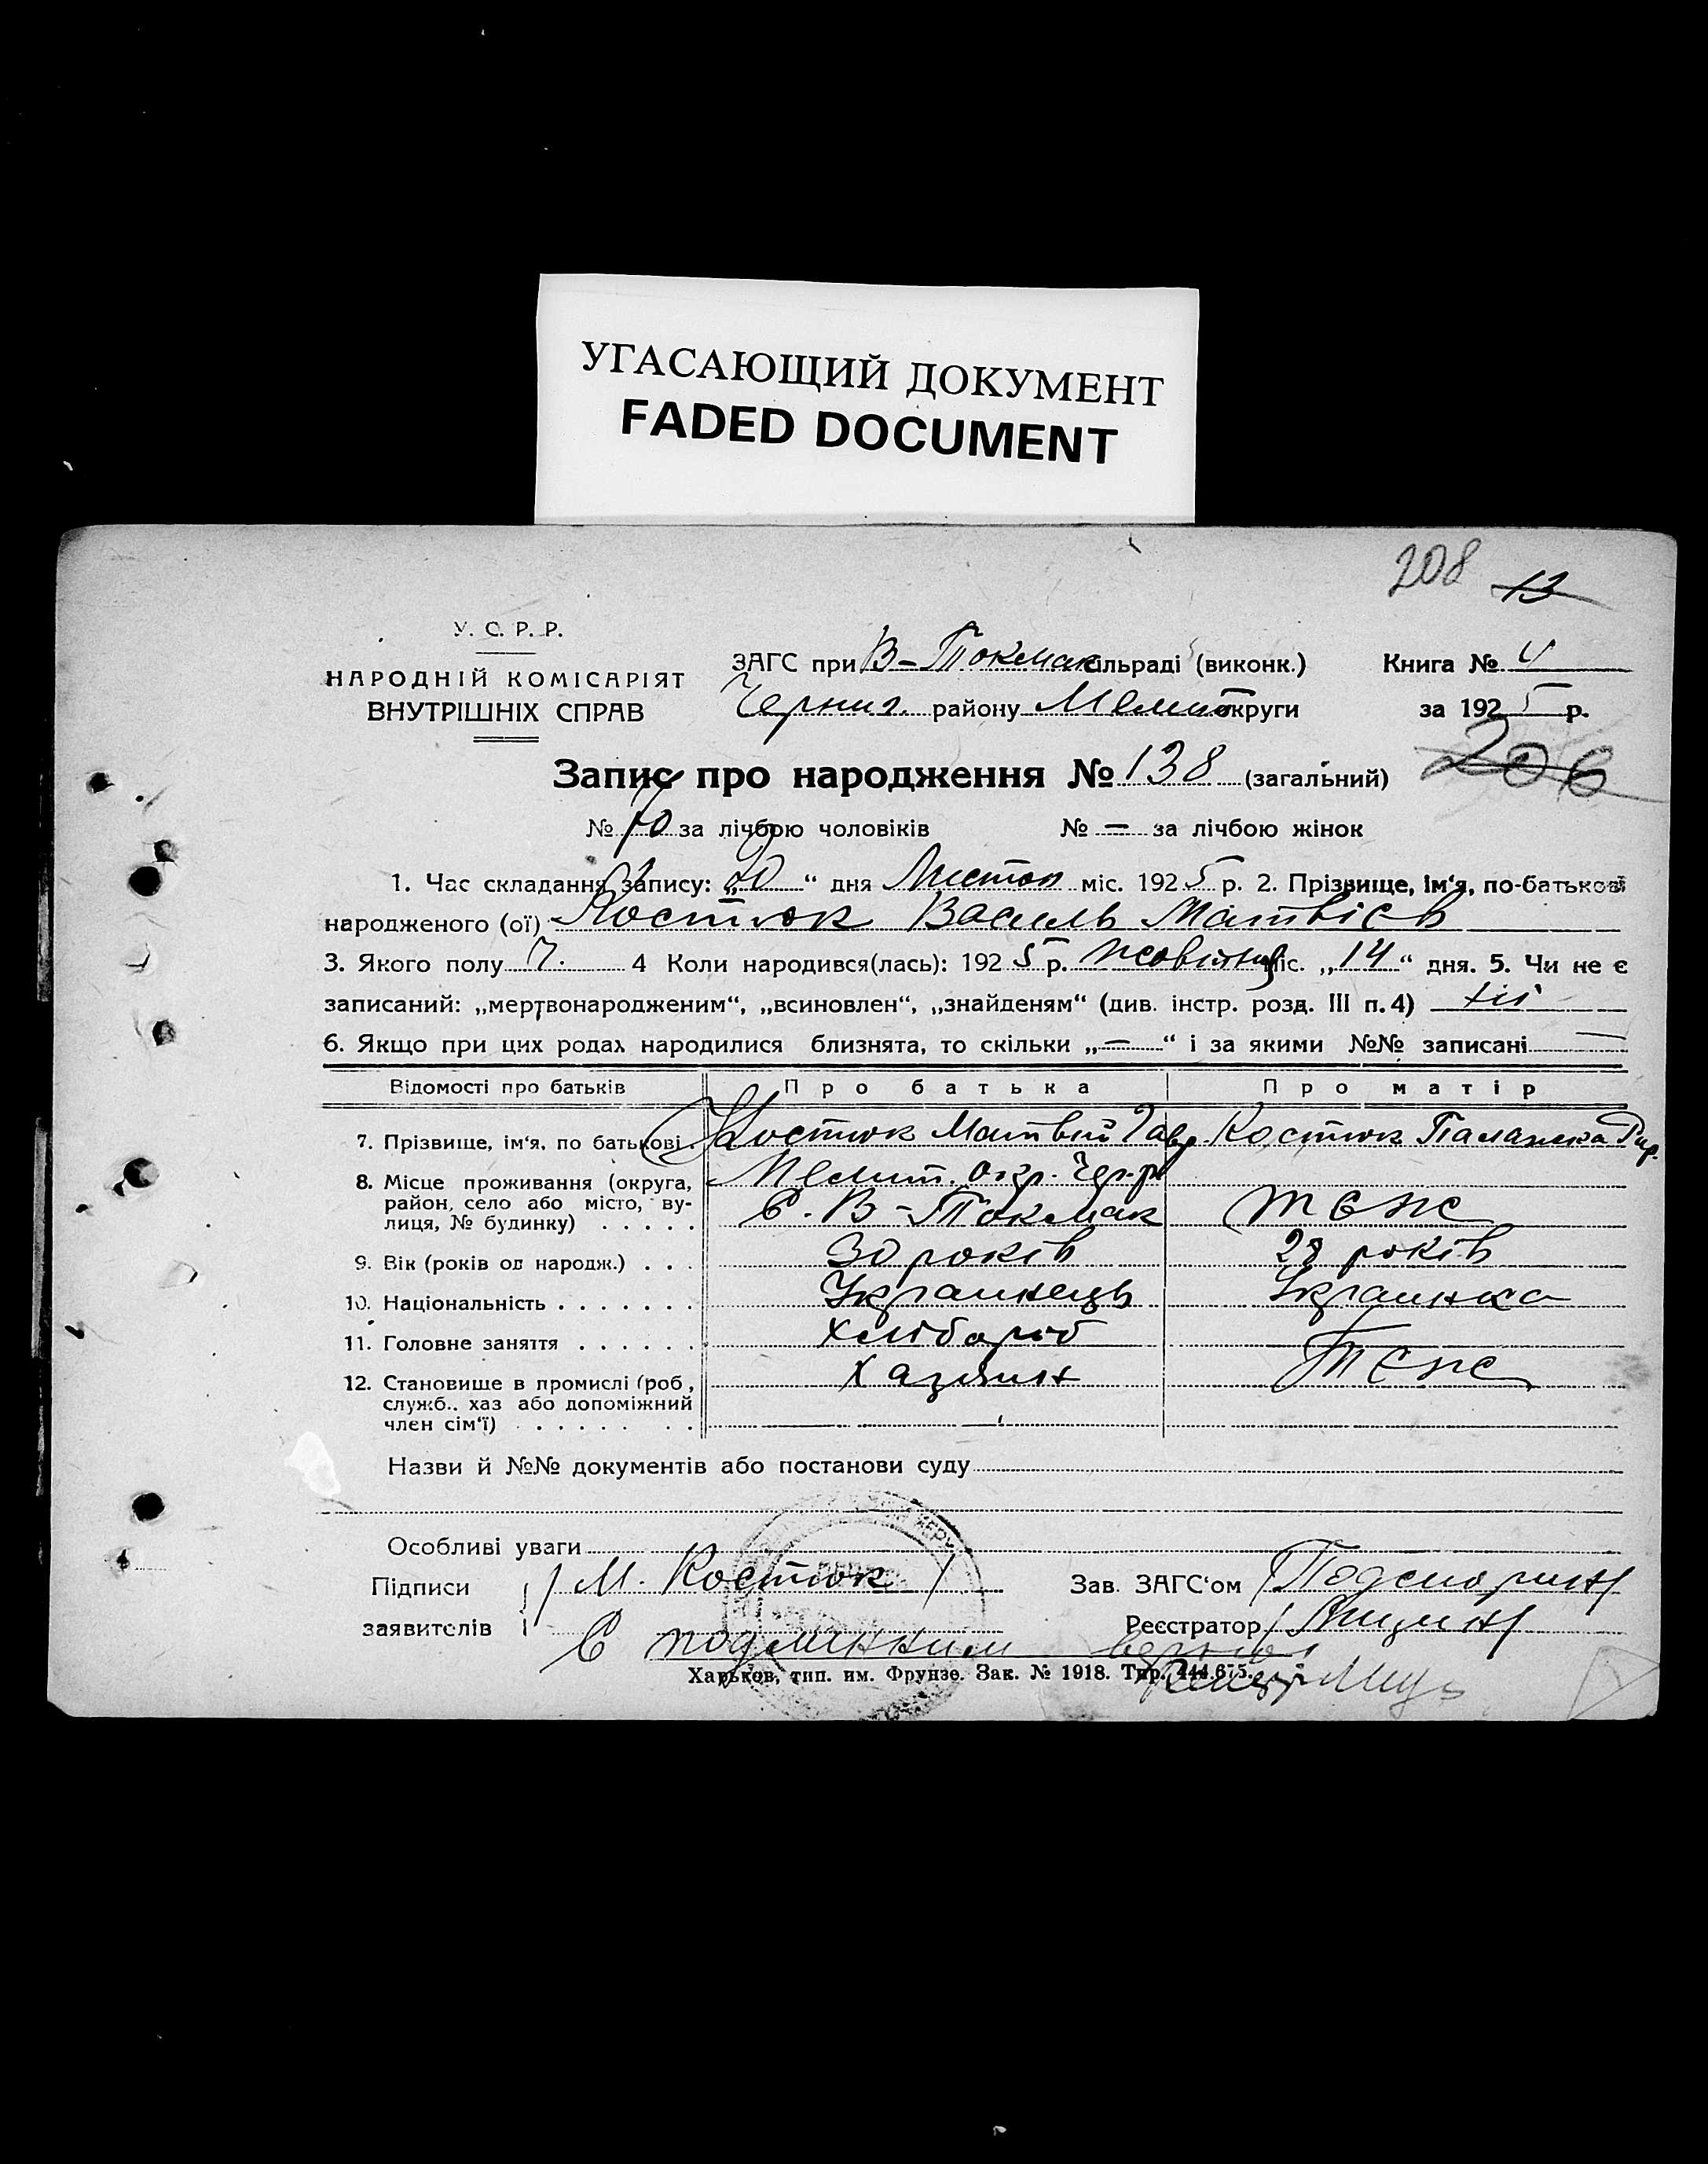 УГАСАЮЩИЙ ДОКУМЕНТ
FADED DOCUMENT
208 13
У. С. Р. Р.
НАРОДНІЙ КОМІСАРІЯТ
ВНУТРІШНІХ СПРАВ
ЗАГС при В-Токмак сільраді (виконк.) Книга № 4
Черниг. району Мелит округи за 1925 р.
Запис про народження № 138 (загальний) 206
№ 70 за лічбою чоловіків № — за лічбою жінок
1. Час складання запису: „20“ дня Листоп міс. 1925 р. 2. Прізвище, ім‘я, по-батькові
народженого (ої) Костюк Василь Матвієв
3. Якого полу Ч. 4 Коли народився(лась): 1925 р. Жовтня міс. „14“ дня. 5. Чи не є
записаний: „мертвонародженим“, „всиновлен“, „знайденям“ (див. інстр. розд. III п. 4) ні
6. Якщо при цих родах народилися близнята, то скільки „—“ і за якими №№ записані —
Відомості про батьків Про батька Про матір
7. Прізвище, ім‘я, по батькові. Костюк Матвій Гавр Костюк Палажка
8. Місце проживання (округа, Мелит. окр. Чер. р
район, село або місто, ву- С. В-Токмак теж
лиця, № будинку) . . . . .
9. Вік (років од народж.) . . . 30 років 28 років
10. Національність . . . . . . . Украинець Украинка
11. Головне заняття . . . . . . Хлібороб
12. Становище в промислі (роб., Хазяин теж
служб., хаз або допоміжний
член сім‘ї) . . . . . . .
Назви й №№ документів або постанови суду
Особливі уваги
Підписи М. Костюк Зав. ЗАГС‘ом
заявителів Реєстратор
С подлинним верно
Харьков, тип. им. Фрунзе. Зак. № 1918. Тир. 444.675.